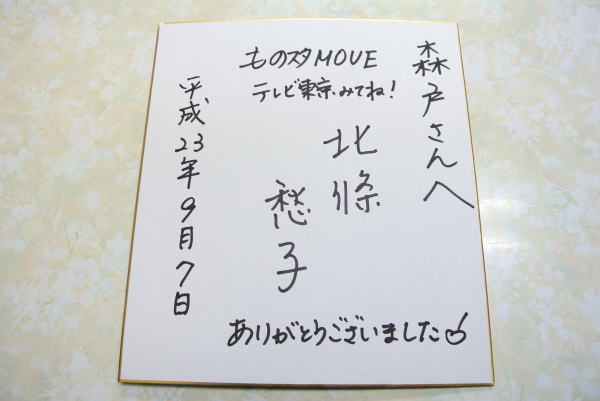 森戸さんへ
ものスタMOVE
テレビ東京みてね!
北條
愁子
平成23年9月7日
ありがとうございました